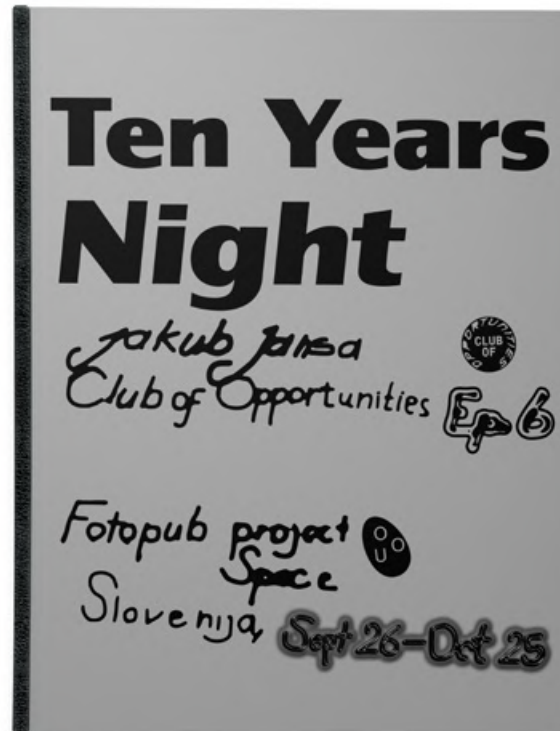 Ten Years
Night
Jakub Jansa
CLUB OF
OPPORTUNITIES
Club of Opportunities Ep 6
Fotopub project
Space
Slovenija,
Sept 26-Oct 25